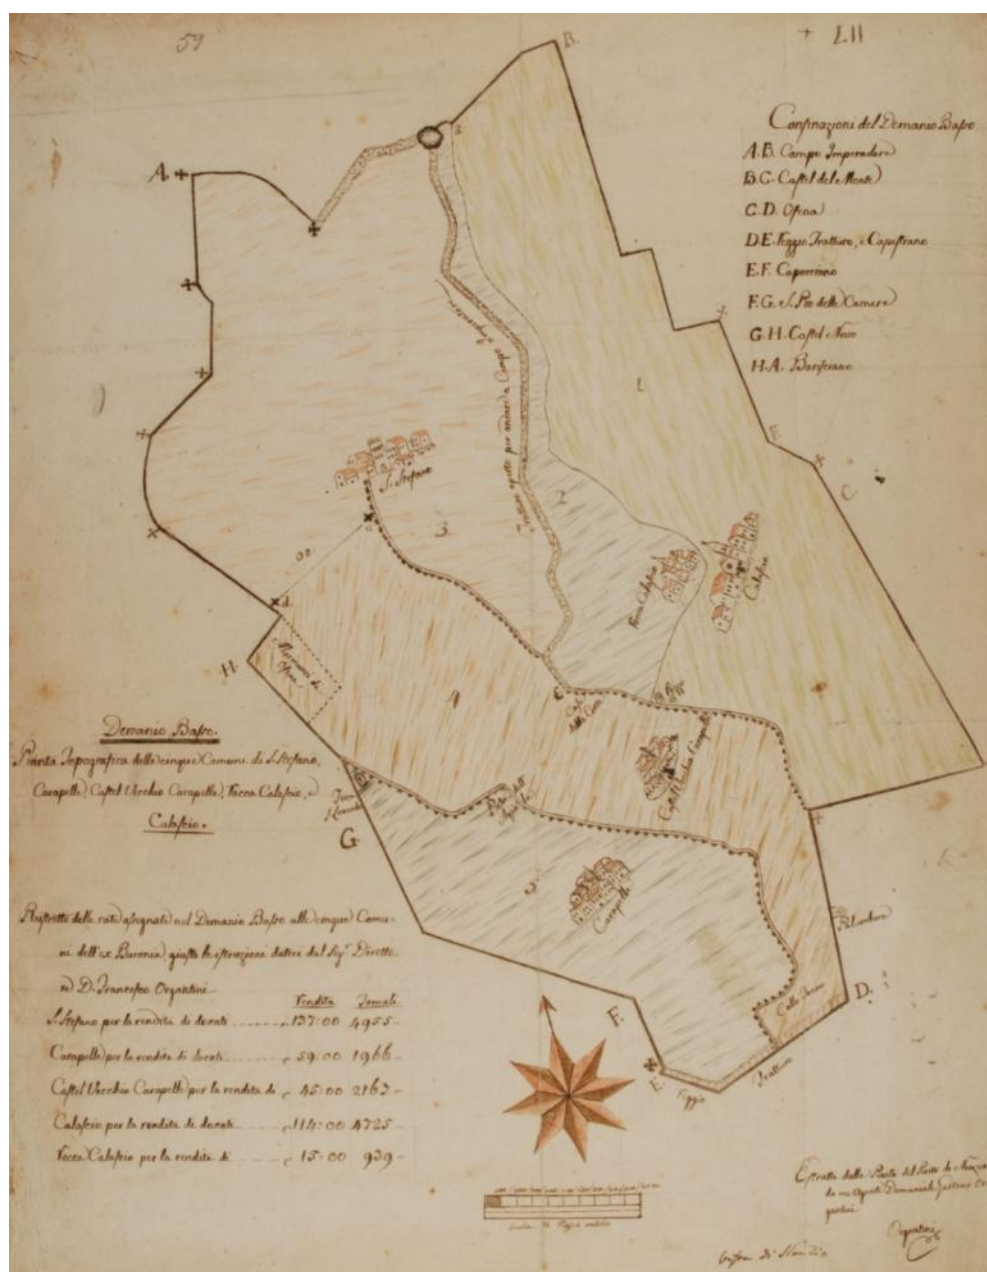 59
+ LII
B.
A.
Confinazioni del Demanio Basso
A.B. Campo Imperadore
B.C. Castel del Monte
C.D. Ofena
D.E. Regio Tratturo, e Capestrano
E.F. Caporciano
F.G. S. Pio delle Camere
G.H. Castel Nuovo
H.A. Barisciano
1
C.
Tratturo aperto per andare a Campo Imperadore
2
S. Stefano
3
Rocca Calascio
Calascio
H.
4
Castel Vecchio Carapelle
Demanio Basso.
Pianta Topografica delle cinque Comuni di S. Stefano,
Carapelle, Castel Vecchio Carapelle, Rocca Calascio, e
Calascio.
G.
5
Carapelle
D.
F.
E.
Reggio
Tratturo
Ristretto delle rate assegnate nel Demanio Basso alle cinque Comu-
ni dell'ex Baronia, giusta le istruzioni dateci dal Sig.r Diretto-
re D. Francesco Organtini
Rendita Tomoli
S. Stefano per la rendita di docati 137:00 4955
Carapelle per la rendita di docati 59:00 1966
Castel Vecchio Carapelle per la rendita di 45:00 2162
Calascio per la rendita di docati 114:00 4725
Rocca Calascio per la rendita di 15:00 939
Estratta dalla Pianta del
Organtini